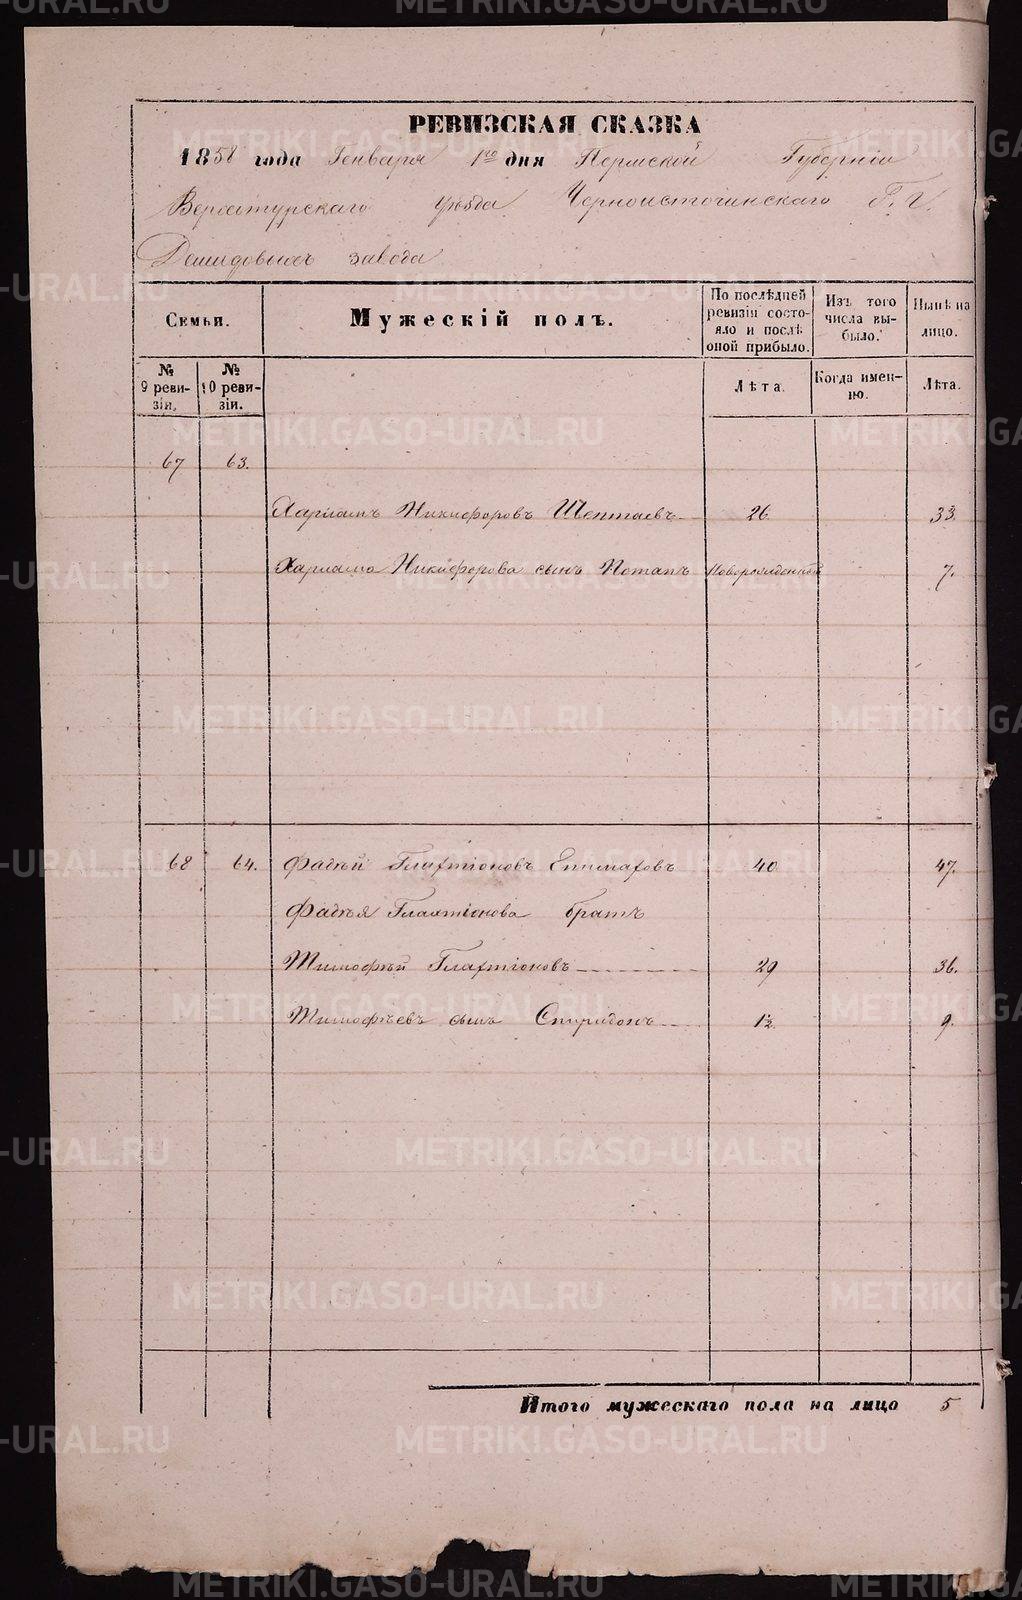 РЕВИЗСКАЯ СКАЗКА
1858 года Генваря 1го дня Пермской Губерніи
Верхотурскаго уѣзда Черноисточинскаго Г. г.
Демидовыхъ завода
Семьи.
Мужескій полъ.
По послѣдней ревизіи состояло и послѣ оной прибыло.
Изъ того числа выбыло.
Нынѣ на лицо.
№ 9 ревизіи.
№ 10 ревизіи.
Лѣта.
Когда именно.
Лѣта.
67 63.
Харламъ Никифоровъ Шептаевъ 26 33.
Харлама Никифорова сынъ Потапъ Новорожденный 7.
68 64. Фадѣй Глахтіоновъ Епимаховъ 40 47.
Фадѣя Глахтіонова братъ
Тимофѣй Глахтіоновъ 29 36.
Тимофѣевъ сынъ Спиридонъ 1½ 9.
Итого мужескаго пола на лицо 5
METRIKI.GASO-URAL.RU